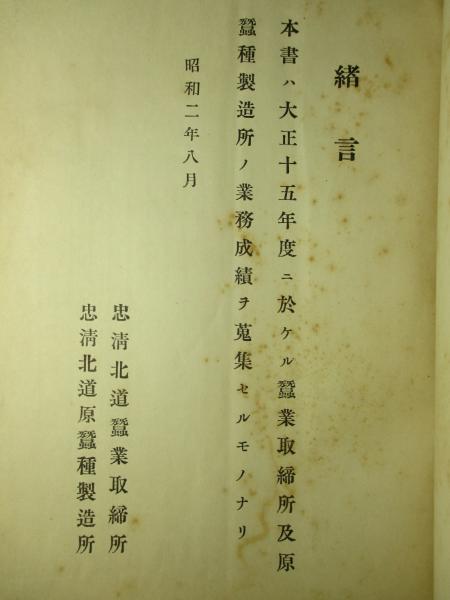 緒言
本書ハ大正十五年度ニ於ケル蠶業取締所及原
蠶種製造所ノ業務成績ヲ蒐集セルモノナリ
昭和二年八月
忠淸北道蠶業取締所
忠淸北道原蠶種製造所